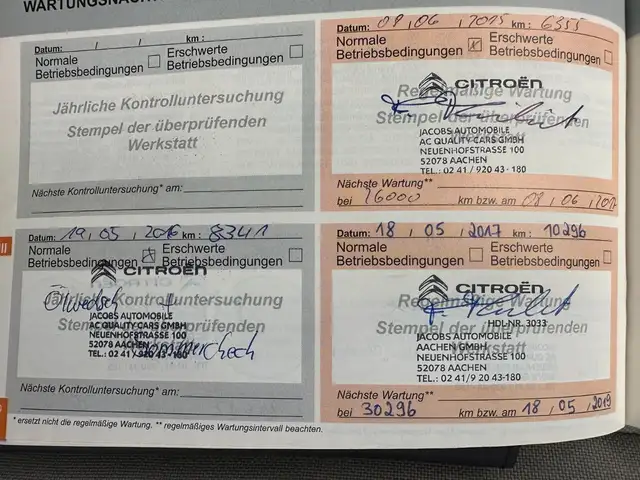 WARTUNGSNACH
Datum: / / km :
Normale Betriebsbedingungen
Erschwerte Betriebsbedingungen
Jährliche Kontrolluntersuchung
Stempel der überprüfenden
Werkstatt
Nächste Kontrolluntersuchung* am:
Datum: 09, 06, 2015 km : 6355
Normale Betriebsbedingungen x
Erschwerte Betriebsbedingungen
CITROËN
Regelmäßige Wartung
Stempel der überprüfenden
JACOBS AUTOMOBILE
AC QUALITY CARS GMBH
NEUENHOFSTRASSE 100
52078 AACHEN
TEL.: 02 41 / 920 43 - 180
Nächste Wartung**
bei 26000 km bzw. am 08, 06, 2017
Datum: 19, 05, 2016 km : 8341
Normale Betriebsbedingungen x
Erschwerte Betriebsbedingungen
CITROËN
Jährliche Kontrolluntersuchung
Ölwechsel +
Stempel der überprüfenden
JACOBS AUTOMOBILE
AC QUALITY CARS GMBH
NEUENHOFSTRASSE 100
52078 AACHEN
TEL.: 02 41 / 920 43 -180
Nächste Kontrolluntersuchung* am:
Datum: 18, 05, 2017 km : 10296
Normale Betriebsbedingungen
Erschwerte Betriebsbedingungen
CITROËN
Regelmäßige Wartung
HDL-NR. 3033
Stempel der überprüfenden
Werkstatt
JACOBS AUTOMOBILE
AACHEN GMBH
NEUENHOFSTRASSE 100
52078 AACHEN
TEL.: 02 41/9 20 43-180
Nächste Wartung**
bei 30296 km bzw. am 18, 05, 2019
* ersetzt nicht die regelmäßige Wartung. ** regelmäßiges Wartungsintervall beachten.